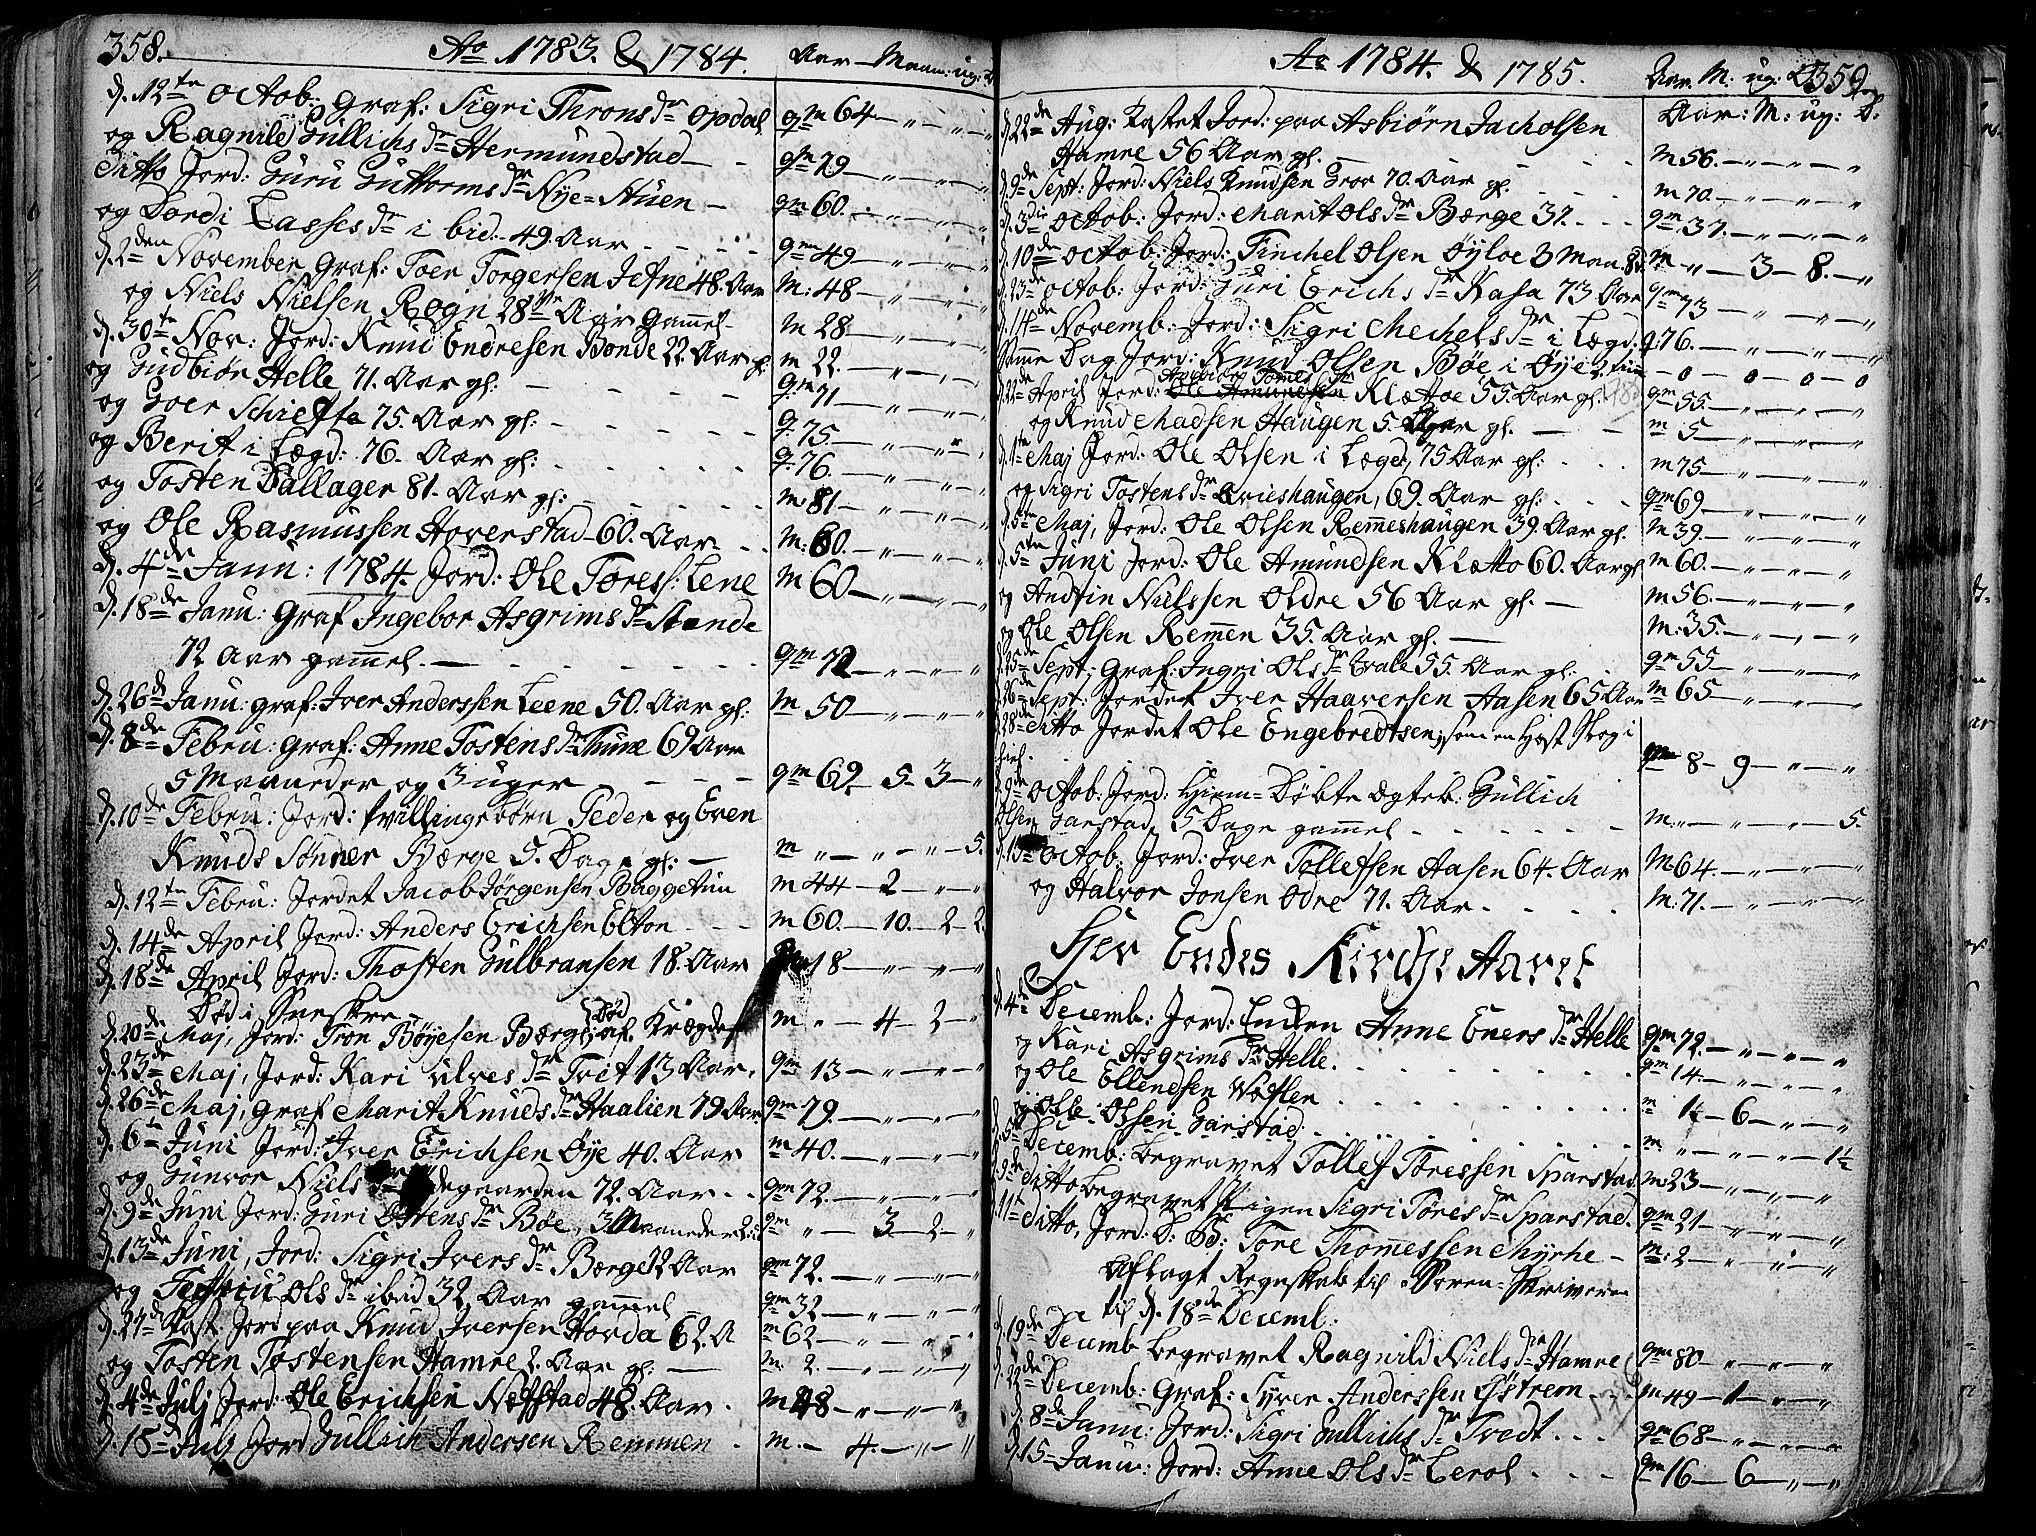 358.
Ao 1783. & 1784.
Aar - Maan: ug:
d. 12te Octob: Graf: Sigri Throns dr Opdal qm 64 - " - " - "
og Ragnild Gullichs dr Hermundstad - qm 79 - " - " - "
Ditto Jord: Guru Guttorms dr Nye-Stuen - qm 60. - " - " - "
og Dordi Lasses dr ibid - 49. Aar - - - qm 49 - " - " - "
d. 2den November Graf: Toer Torgersen Jefne 48. Aar m: 48 - " - " - "
og Niels Nielsen Rogn 28 Aar gamel - m 28 - " - " - "
d. 30te Nov: Jord: Knud Endresen Bonde 22. Aar gl. m 22. - " - " - "
og Gudbiør Helle 71. Aar gl: - - - qm 71 - " - " - "
og Goer Schieffe 75. Aar gl: - - - q. 75 - " - " - "
og Berit i Lægd: 76. Aar gl: - - - q. 76. - " - " - "
og Tosten Dallager 81. Aar gl: - - - m: 81 - " - " - "
og Ole Rasmussen Hoverstad - 60. Aar - - m: 60. - " - " - "
d. 4de Janu: 1784. Jord: Ole Toress: Lene m 60 - " - " - "
d. 18de Janu: Graf Ingebor Asgrims dr Stende
72 Aar gamel. - - - - qm 72 - " - " - "
d. 26d Janu: graf. Iver Anderssen Leene 50. Aar gl: m 50 - " - " - "
d. 8de Febru: Graf: Anne Tostens dr Thune 69 Aar
5 Maaneder og 3 uger - - - qm 69 - 5 - 3 - "
d. 10de Febru: Jord: tvillingebörn Peder og Even
Knuds Sønner Børge 5. Dage gl: - m " - " - " - 5.
d. 12te Febru: Jordet Jacob Jørgensen Baggetun m 44 - 2 - " - "
d. 14de April Jord: Anders Erichsen Elton - - - m 60. - 10. - 2 - 2.
d. 18de April Jord: Thosten Gulbransen 18. Aar 18 - " - " - "
Död i Svenskre.
d. 20de Maj, Jord: Tron Bøyesen Børge, Död af Krægde m " - 4 - 2 - "
d. 23de Maj, Jord: Kari Ulves dr Tvet 13 Aar. qm 13 - " - " - "
d. 26de Maj, Graf Marit Knuds dr Haalien 79 Aar qm 79. - " - " - "
d. 6te Juni Jord: Iver Erichsen Øye 40. Aar m 40. - " - " - "
og Gunvor Niels degaarden 72. Aar - - qm 72. - " - " - "
d. 9de Juni Jord: Guri Ostens dr Bøe, 3 Maaneder 2: qm " - 3 - 2 - "
d. 13de Juni, Jord: Sigri Ivers dr Børge 72 Aar qm 72. - " - " - "
og Ols dr ibid 32. Aar gamel - qm 32 - " - " - "
d. 27d Kast. Jord paa Knud Iversen Horda 62. A m 62 - " - " - "
og Tosten Tostensen Hamre 2. Aar gl. - m. 2. - " - " - "
d. 4de Julj Jord: Ole Erichsen Nefstad 48. Aar. m 48 - " - " - "
d. 18d Julj Jord Gullich Andersen Remmen - m. - 4. - " - "
Ao 1784. & 1785.
Aar. M: ug: D 359
Aar: M: ug: D.
d. 22de Aug: Kastet Jord: paa Asbiørn Jacholsen
Hamre 56 Aar gl. - - - m 56. - " - " - "
d. 9de Sept: Jord: Niels Knudsen Groe 70. Aar gl. m 70. - " - " - "
d. 3die Octob: Jord: Marit Ols dr Børge 37. - - - qm 37. - " - " - "
d. 10de Octob: Jord: Tinchel Olsen Øyloe 3 Maa. 8 m " - 3 - 8. - "
d. 23de Octob: Jord: Guri Erichs dr Kasa 73 Aar qm 73 - " - " - "
d. 14de Novemb: Jord: Sigri Mechels dr i Lægd. q. 76. - " - " - "
Same Dag Jord: Knud Olsen Bøe i Øye - 0 - 0 - 0 - 0
d. 22de April Jord: Klættoe 55. Aar gl. qm 55. - " - " - "
og Knud Madsen Haugen 5. Aar gl. - - m 5 - " - " - "
d. 1te Maj Jord: Ole Olsen i Lægd, 75 Aar gl: m 75 - " - " - "
og Sigri Tostens dr Qvieshaugen, 69. Aar gl: - - qm 69 - " - " - "
d. 5te Maj, Jord: Ole Olsen Remeshaugen 39. Aar gl. m 39. - " - " - "
d. 5te Juni Jord: Ole Amundsen Klætto 60. Aar gl m 60. - " - " - "
og Andfin Nielssen Oldre 56 Aar gl. - m 56. - " - " - "
og Ole Olsen Remen 35. Aar gl. - m: 35. - " - " - "
d. 25de Sept: Graf: Ingri Ols dr Qvale 55. Aar gl. - qm 55 - " - " - "
d. 26de Sept: Jordet Iver Haaversen Aasen 65 Aar m 65 - " - " - "
d. 28de Ditto Jordet Ole Engebredtsen, som en Hest Slog i
hiel. - - - - 8 - 9 - " - "
d. 9de Octob: Jord: Hiem-Døbte Ægteb: Gullich
Olsen Garstad, 5 Dage gamel - - - - m: " - " - " - 5.
d. 15 Octob: Jord: Iver Tollefsen Aasen 64. Aar m 64. - " - " - "
og Halvor Jonsen Odre 71. Aar. - - - m: 71. - " - " - "
Her Endes Kirche Aaret
d. 4de Decemb: Jord: Enken Anne Eners dr Helle qm 72. - " - " - "
og Kari Asgrims dr Helle. - - - qm 14. - " - " - "
og Ole Ellendsen Woflen - - - m 14 - 6 - " - "
og Olle Olsen Garstad. - - - m " - " - " - 1½
d. 5te Decemb: begravet Tollef Toressen Sparstad. m: 23 - " - " - "
d. 9de Ditto begravet Pigen Sigri Tores dr Sparstad. qm 21 - " - " - "
d. 11te Ditto, Jord: D. B: Tore Thomessen Myrhe - m: 2 - " - " - "
Aflagt Regnskab til Soren-Skriveren
til d. 18de Deceml:
d. 19de Decemb begravet Ragnild Niels dr Hamre qm 80 - " - " - "
d. 22de Decemb: Graf: Syver Anderssen Østrem - - m 49 - 1 - " - "
d. 8de Janu: Jord: Sigri Gullichs dr Tvedt. - - - qm 68 - " - " - "
d. 15 Janu: Jord: Anne Ols dr Lerol - - - qm 16 - 6 - " - "